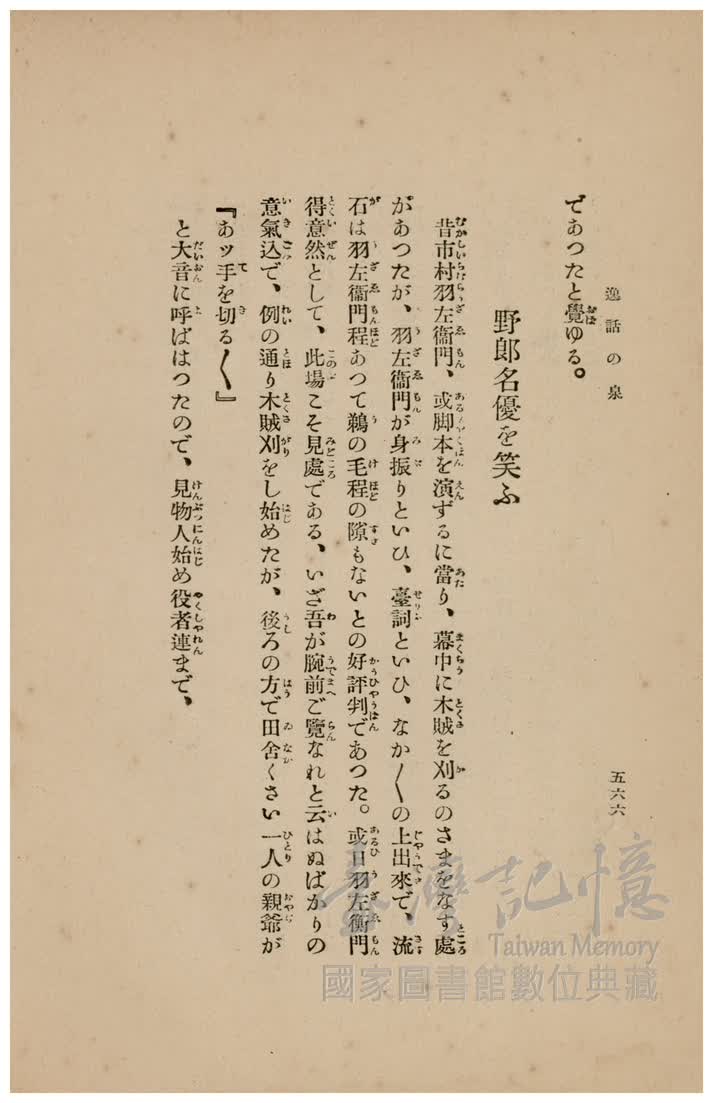 逸話の泉
五六六
であつたと覺ゆる。
野郎名優を笑ふ
昔市村羽左衞門、或脚本を演ずるに當り、幕中に木賊を刈るのさまをなす處
があつたが、羽左衞門が身振りといひ、臺詞といひ、なか〳〵の上出來で、流
石は羽左衞門程あつて鵜の毛程の隙もないとの好評判であつた。或日羽左衞門
得意然として、此場こそ見處である、いざ吾が腕前ご覽なれと云はぬばかりの
意氣込で、例の通り木賊刈をし始めたが、後ろの方で田舍くさい一人の親爺が
『あッ手を切る〳〵』
と大音に呼ばはつたので、見物人始め役者連まで、
臺灣記憶
Taiwan Memory
國家圖書館數位典藏